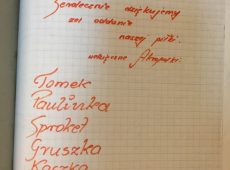 Serdecznie dziękujemy
za oddanie
naszej piłki.
wdzięczne
Tomek
Paulinka
Sproket
Gruszka
Kaczka